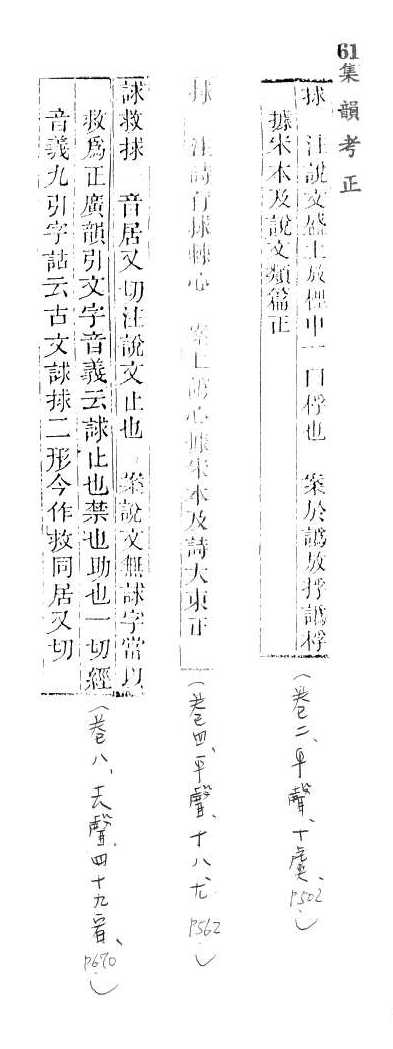 61
集韻考正
捄　注說文盛土於梩中一曰捊也　案於譌放捊譌桴
據宋本及說文類篇正
（卷二、平聲、十虞、P502）
捄　注詩有捄棘心　案匕譌心據宋本及詩大東正
（卷四、平聲、十八尤、P562）
䛮救捄　音居又切注說文止也　案說文無䛮字當以
救爲正廣韻引文字音義云䛮止也禁也助也一切經
音義九引字詁云古文䛮捄二形今作救同居又切
（卷八、去聲、四十九宥、P670）